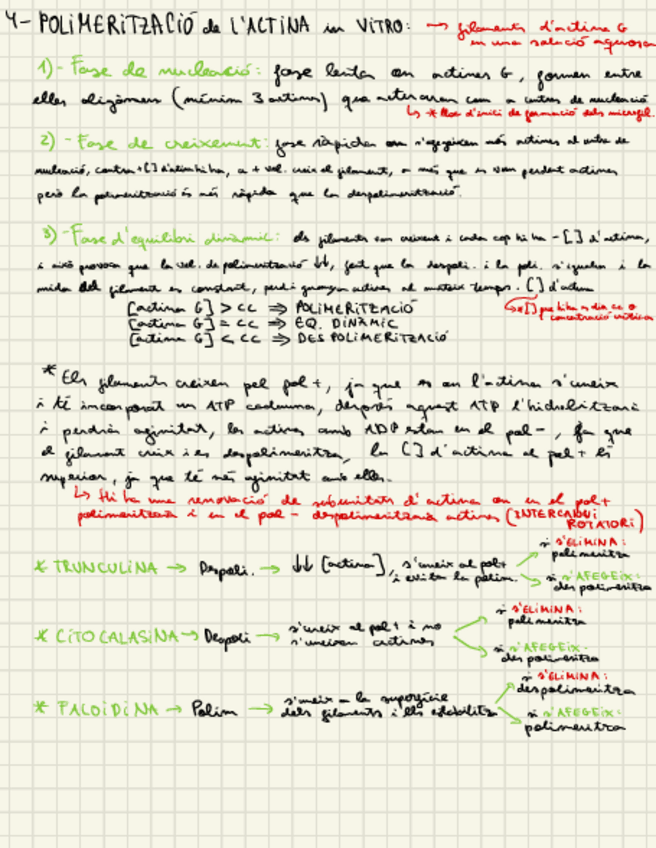 4- POLiMERiTZACiÓ de L'ACTiNA in ViTRO: → filaments d'actina G
en una solució aquosa
1)- Fase de nucleació: fase lenta on actines G, formen entre
elles oligòmers (mínim 3 actines) que actuaran com a centres de nucleació
↳ * lloc d'inici de formació dels microfil.
2) - Fase de creixement: fase ràpida on s'afegeixen més actines al centre de
nucleació, contra + [] d'actina hi ha, a + vel. creix el filament, a més que es van perdent actines
però la polimerització és més ràpida que la despolimerització.
3)- Fase d'equilibri dinàmic: els filaments van creixent i cada cop hi ha - [] d'actina,
i això provoca que la vel. de polimerització ↓↓, fent que la despoli. i la poli. s'igualin i la
mida del filament es constant, perd i guanya actines al mateix temps. [] d'actina
[actina G] > cc ⇒ POLiMERiTZACiÓ
[actina G] = cc ⇒ EQ. DiNÀMiC
[actina G] < cc ⇒ DESPOLiMERiTZACiÓ
↳ * [] que hi ha a dia cc o
concentració crítica
* Els filaments creixen pel pol +, ja que és on l'actina s'uneix
i té incorporat un ATP cadascuna, després aquest ATP l'hidrolitzarà
i perdrà afinitat, les actines amb ADP estan en el pol -, fa que
el filament creix i es despolimeritza, la [] d'actina al pol + és
superior, ja que té més afinitat amb elles.
↳ Hi ha una renovació de subunitats d'actina on en el pol +
polimeritzarà i en el pol - despolimeritzarà actines (iNTERCANVi
ROTATORi)
* TRUNCULiNA → Despoli. → ↓↓ [actina], s'uneix al pol +
i evita la polim.
si s'ELiMiNA:
polimeritza
si s'AFEGEiX:
despolimeritza
* CiTOCALASiNA → Despoli → s'uneix al pol + i no
s'uneixen actines
si s'ELiMiNA:
polimeritza
si s'AFEGEiX:
despolimeritza
* FALOiDiNA → Polim → s'uneix a la superfície
dels filaments i els estabilitza
si s'ELiMiNA:
despolimeritza
si s'AFEGEiX:
polimeritza